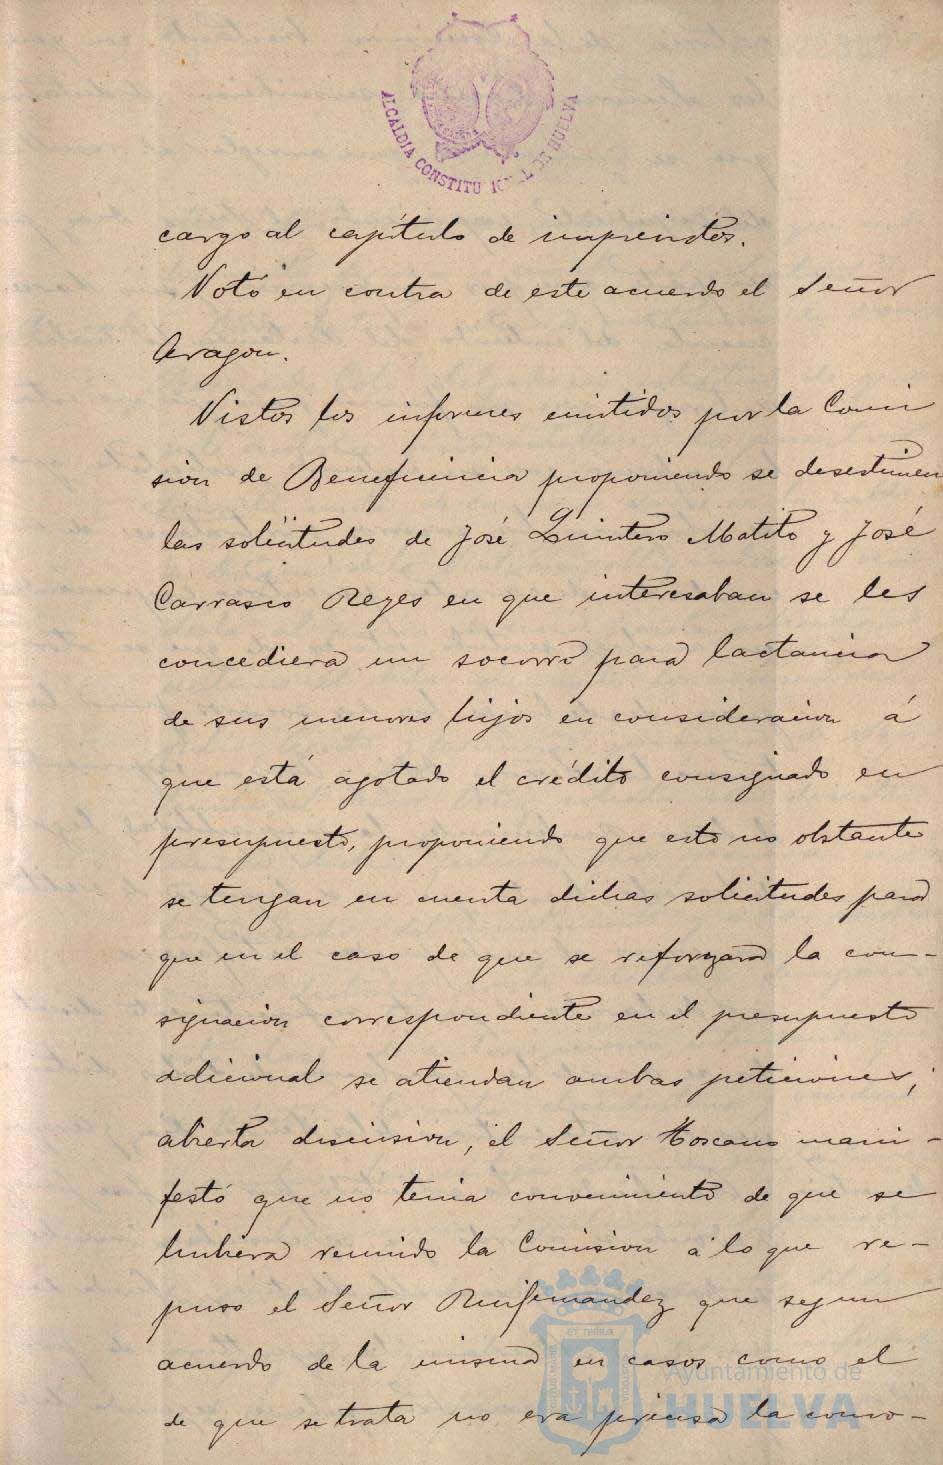 ALCALDIA CONSTITUCIONAL DE HUELVA
cargo al capítulo de imprevistos.
Votó en contra de este acuerdo el Señor
Aragon.
Vistos los informes emitidos por la Comi
sion de Beneficencia proponiendo se desestimen
las solicitudes de José Quintero Matito y José
Carrasco Reyes en que interesaban se les
concediera un socorro para lactancia
de sus menores hijos en consideracion á
que está agotado el crédito consignado en
presupuesto, proponiendo que esto no obstante
se tengan en cuenta dichas solicitudes para
que en el caso de que se reforzara la con-
signacion correspondiente en el presupuesto
adicional se atiendan ambas peticiones;
abierta discusion, el Señor Toscano mani-
festó que no tenia conocimiento de que se
hubiera reunido la Comision á lo que re-
puso el Señor Ruifernandez que segun
acuerdo de la misma en casos como el
de que se trata no era precisa la convo-
Ayuntamiento de
HUELVA